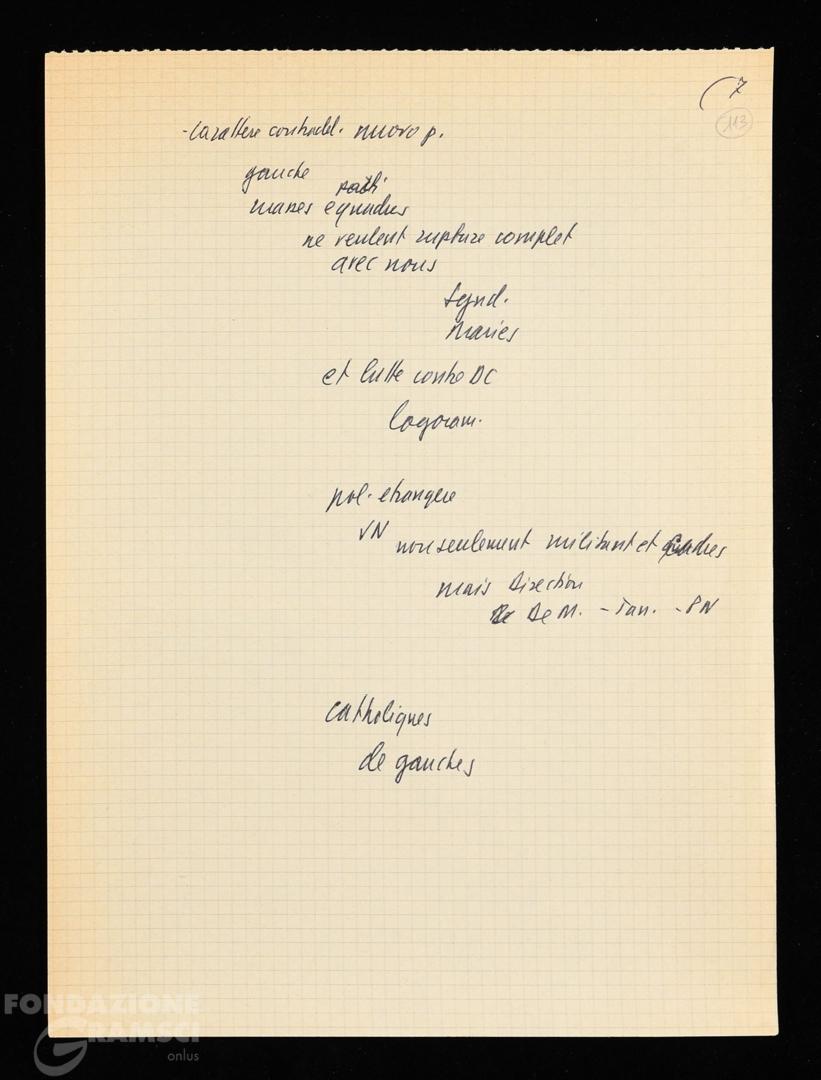 7
113
- Carattere contradd. nuovo p.
gauche
masses
ne veulent rupture complet
avec nous
Synd.
Mairies
et lutte contre DC
Logoram.
pol. etrangere
VN
non seulement militant et cadres
mais Direction
De M. - Tan. - PN
catholiques
de gauches
FONDAZIONE
GRAMSCI
onlus